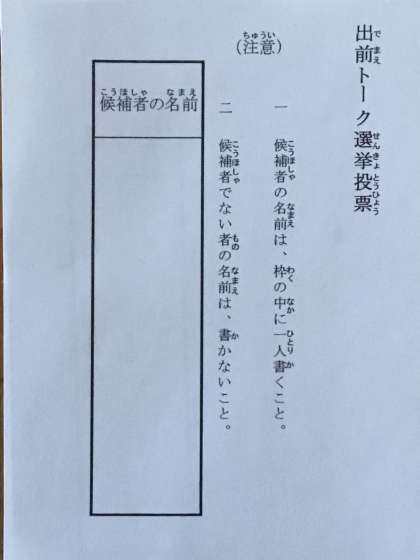 出前トーク選挙投票
(注意)
一 候補者の名前は、枠の中に一人書くこと。
二 候補者でない者の名前は、書かないこと。
候補者の名前